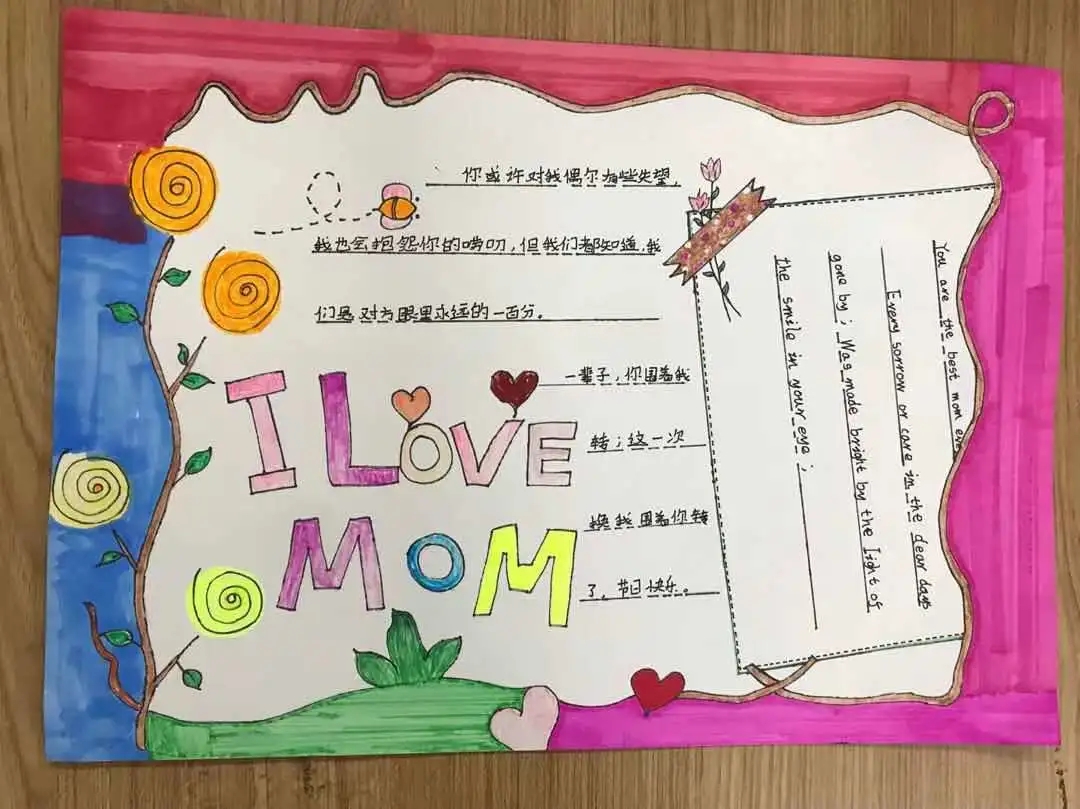 你或许对我偶尔有些失望，
我也会抱怨你的唠叨，但我们都知道，我
们是对方眼里永远的一百分。
I LOVE
MOM
一辈子，你围着我
转；这一次
换我围着你转
了，节日快乐。
You are the best mom ever
Every sorrow or care in the dear days
gone by; Was made bright by the light of
the smile in your eye;